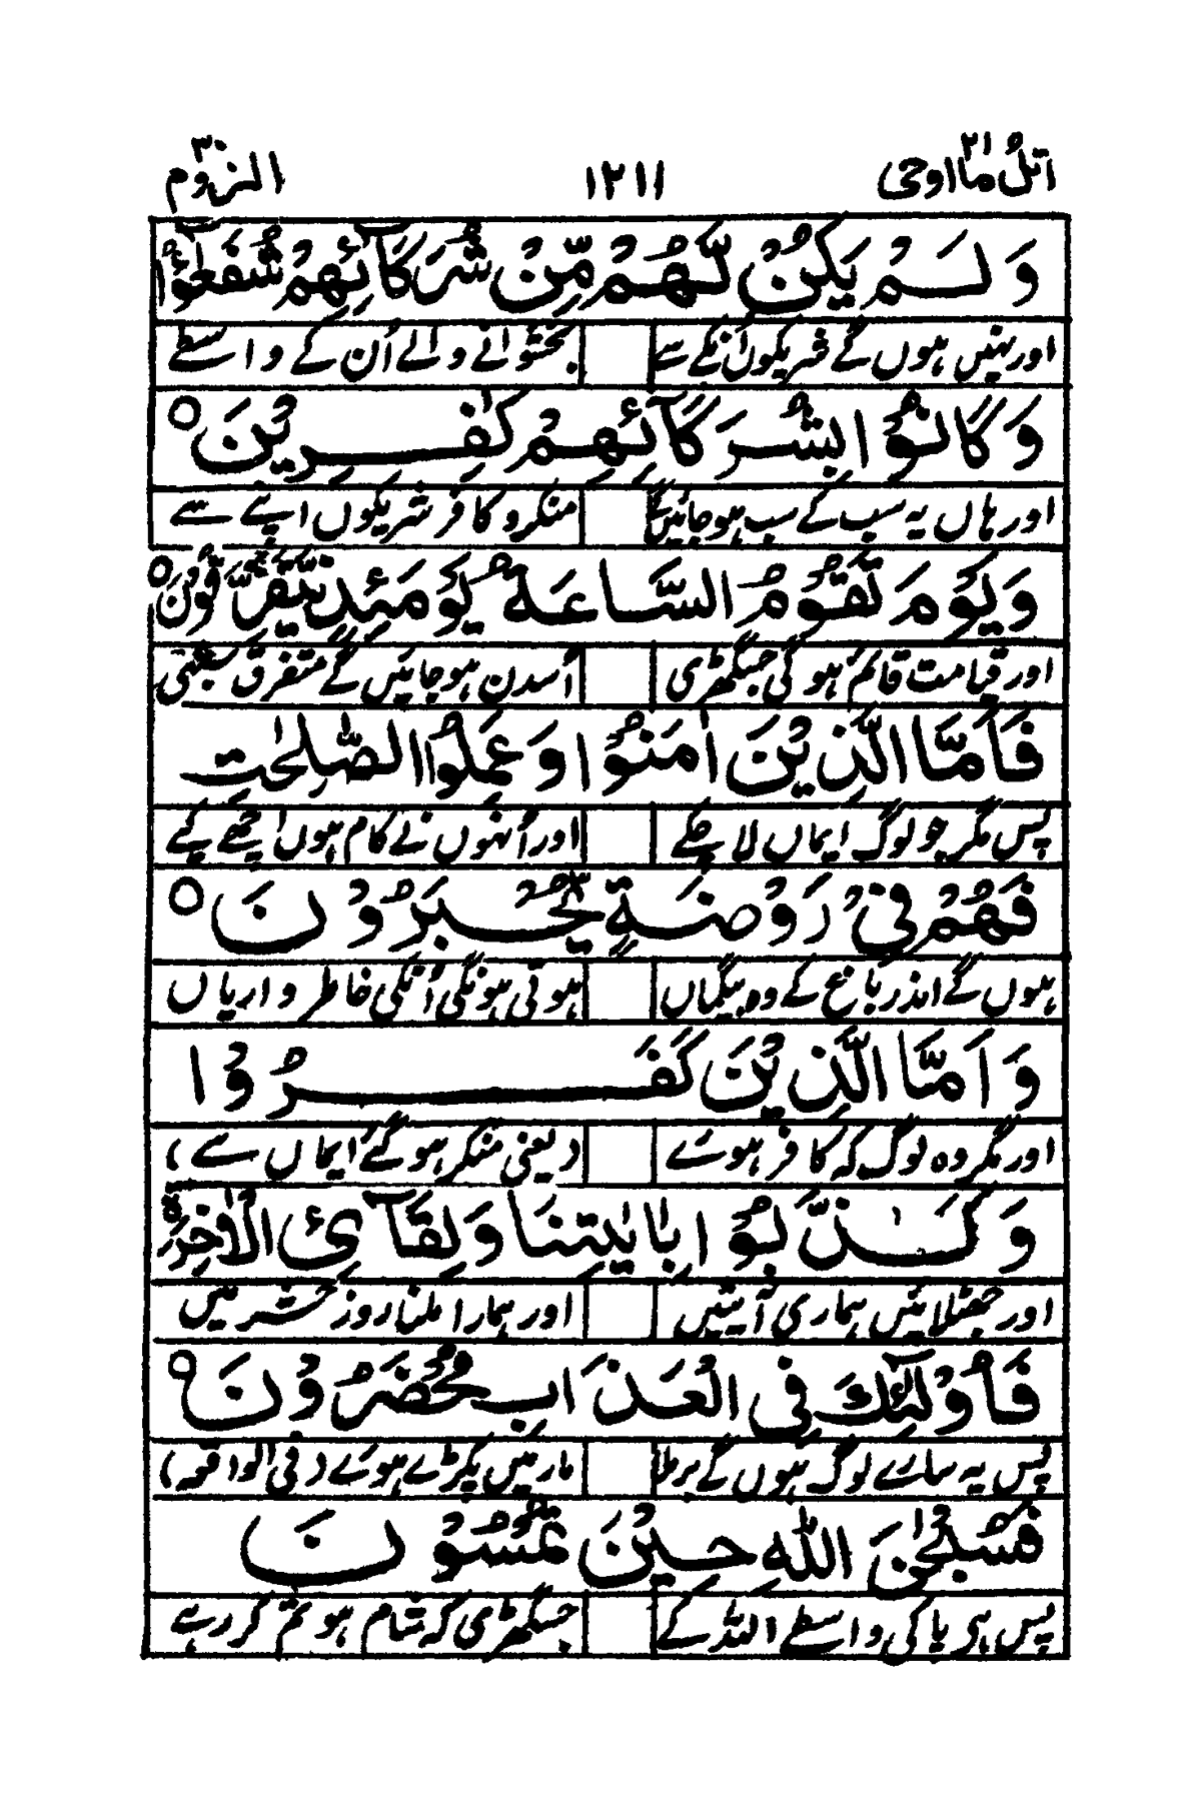 اتل ما اوحی ۲۱ ۱۲۱۱ الروم ۳۰
وَلَمْ يَكُنْ لَّهُمْ مِّنْ شُرَكَآئِهِمْ شُفَعٰٓؤُا
اور نہیں ہوں گے شریکوں اُنکے سے بخشوانے والے اُن کے واسطے
وَكَانُوْا بِشُرَكَآئِهِمْ كٰفِرِيْنَ ○
اور ہاں یہ سب کے سب ہو جائیں گے منکر و کافر شریکوں اپنے سے
وَيَوْمَ تَقُوْمُ السَّاعَةُ يَوْمَئِذٍ يَّتَفَرَّقُوْنَ ○
اور قیامت قائم ہو گی جس گھڑی اُسدن ہو جائیں گے متفرق سبھی
فَاَمَّا الَّذِيْنَ اٰمَنُوْا وَعَمِلُوا الصّٰلِحٰتِ
پس مگر جو لوگ ایماں لا چکے اور اُنہوں نے کام ہوں اچھے کیے
فَهُمْ فِيْ رَوْضَةٍ يُّحْبَرُوْنَ ○
ہوں گے اندر باغ کے وہ بیگماں ہوتی ہونگی اُنکی خاطر داریاں
وَاَمَّا الَّذِيْنَ كَفَرُوْا
اور مگر وہ لوگ کہ کافر ہوئے (یعنی منکر ہو گئے ایماں سے)
وَكَذَّبُوْا بِاٰيٰتِنَا وَلِقَآئِ الْاٰخِرَةِ
اور جھٹلائیں ہماری آیتیں اور ہمارا ملنا روز حشر میں
فَاُولٰٓئِكَ فِى الْعَذَابِ مُحْضَرُوْنَ ○
پس یہ سارے لوگ ہوں گے برملا مار میں پکڑے ہوئے (فی الواقعہ)
فَسُبْحٰنَ اللّٰهِ حِيْنَ تُمْسُوْنَ
پس ہی پاکی واسطے اللہ کے جس گھڑی کہ شام ہو تم کر رہے